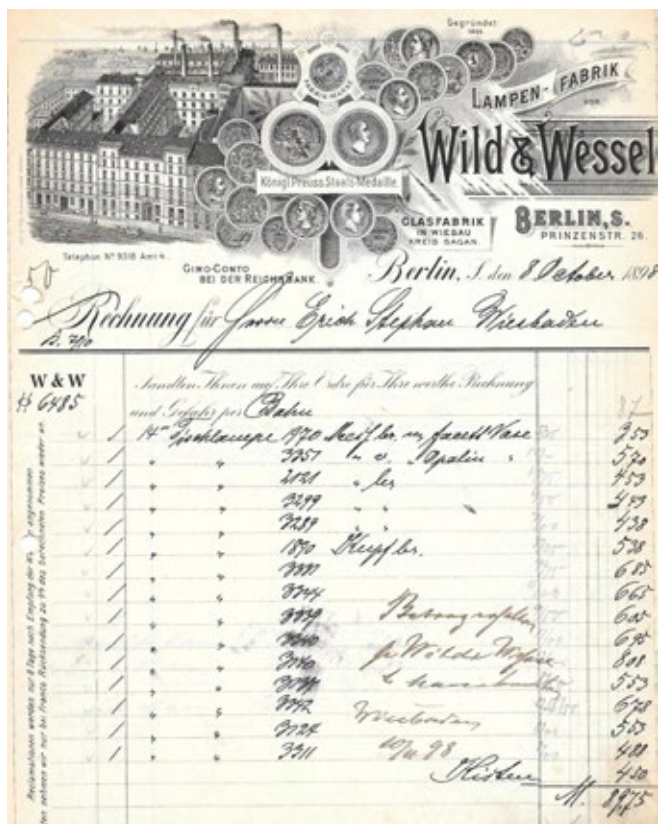 Gegründet
1855
FABRIK-MARKE
LAMPEN-FABRIK
VON
Wild & Wessel
Königl. Preuss. Staats-Medaille.
GLASFABRIK
IN WIESAU
KREIS SAGAN.
BERLIN, S.
PRINZENSTR. 26.
Telephon Nº 9318 Amt 4.
GIRO-CONTO
BEI DER REICHSBANK.
50
Berlin, S. den 8 October 1898
Rechnung für Herrn Erich Stephan Wiesbaden
W & W
# 6485
Sandten Ihnen auf Ihre Ordre für Ihre werthe Rechnung
und Gefahr per Bahn
87
1 14''' Tischlampe 1970 br. m. facett Vase 353
1 " " 3351 " " Opalin " 570
1 " " 2121 " br 453
1 " " 3299 " " 443
1 " " 3289 " " 438
1 " " 1890 Kupf br. 538
1 " " 685
1 " " 3344 665
1 " " 3339 605
1 " " 695
1 " " 3140 für Wild & Wessel 808
1 " " 553
1 " " 3342 Wiesbaden 678
1 " " 3124 553
1 " " 3311 98 488
Kisten 450
M. 8975
Reclamationen werden nur 8 Tage nach Empfang der angenommen
nehmen wir nur bei franco Rücksendung zu des berechneten Preises wieder an.